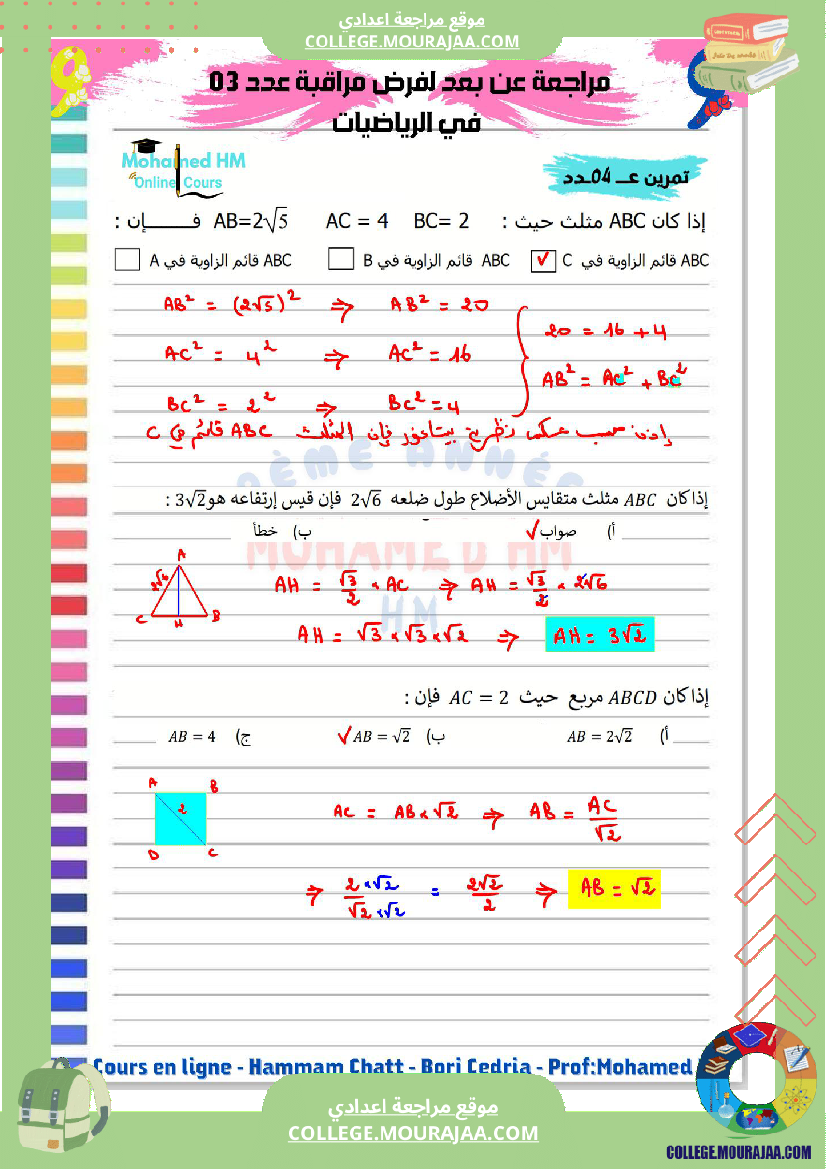 موقع مراجعة اعدادي
COLLEGE.MOURAJAA.COM
مراجعة عن بعد لفرض مراقبة عدد 03
في الرياضيات
Mohamed HM
Online Cours
تمرين عــ04ـدد
إذا كان ABC مثلث حيث : BC= 2 AC = 4 AB=2√5 فــــــإن :
ABC قائم الزاوية في C ✓ ABC قائم الزاوية في B ABC قائم الزاوية في A
AB² = (2√5)² ⇒ AB² = 20
AC² = 4² ⇒ AC² = 16
BC² = 2² ⇒ BC² = 4
20 = 16 + 4
AB² = AC² + BC²
إذن حسب عكس نظرية بيتاغور فإن المثلث ABC قائم في C
إذا كان ABC مثلث متقايس الأضلاع طول ضلعه 2√6 فإن قيس إرتفاعه هو 3√2 :
أ) صواب ✓ ب) خطأ
A
2√6
C H B
AH = √3/2 × AC ⇒ AH = √3/2 × 2√6
AH = √3 × √3 × √2 ⇒ AH = 3√2
إذا كان ABCD مربع حيث AC = 2 فإن :
أ) AB = 2√2 ب) AB = √2 ✓ ج) AB = 4
A B
2
D C
AC = AB × √2 ⇒ AB = AC/√2
⇒ 2×√2/√2×√2 = 2√2/2 ⇒ AB = √2
9ÈME ANNÉE
MOHAMED HM
HM
Cours en ligne - Hammam Chatt - Borj Cedria - Prof:Mohamed
موقع مراجعة اعدادي
COLLEGE.MOURAJAA.COM
COLLEGE.MOURAJAA.COM